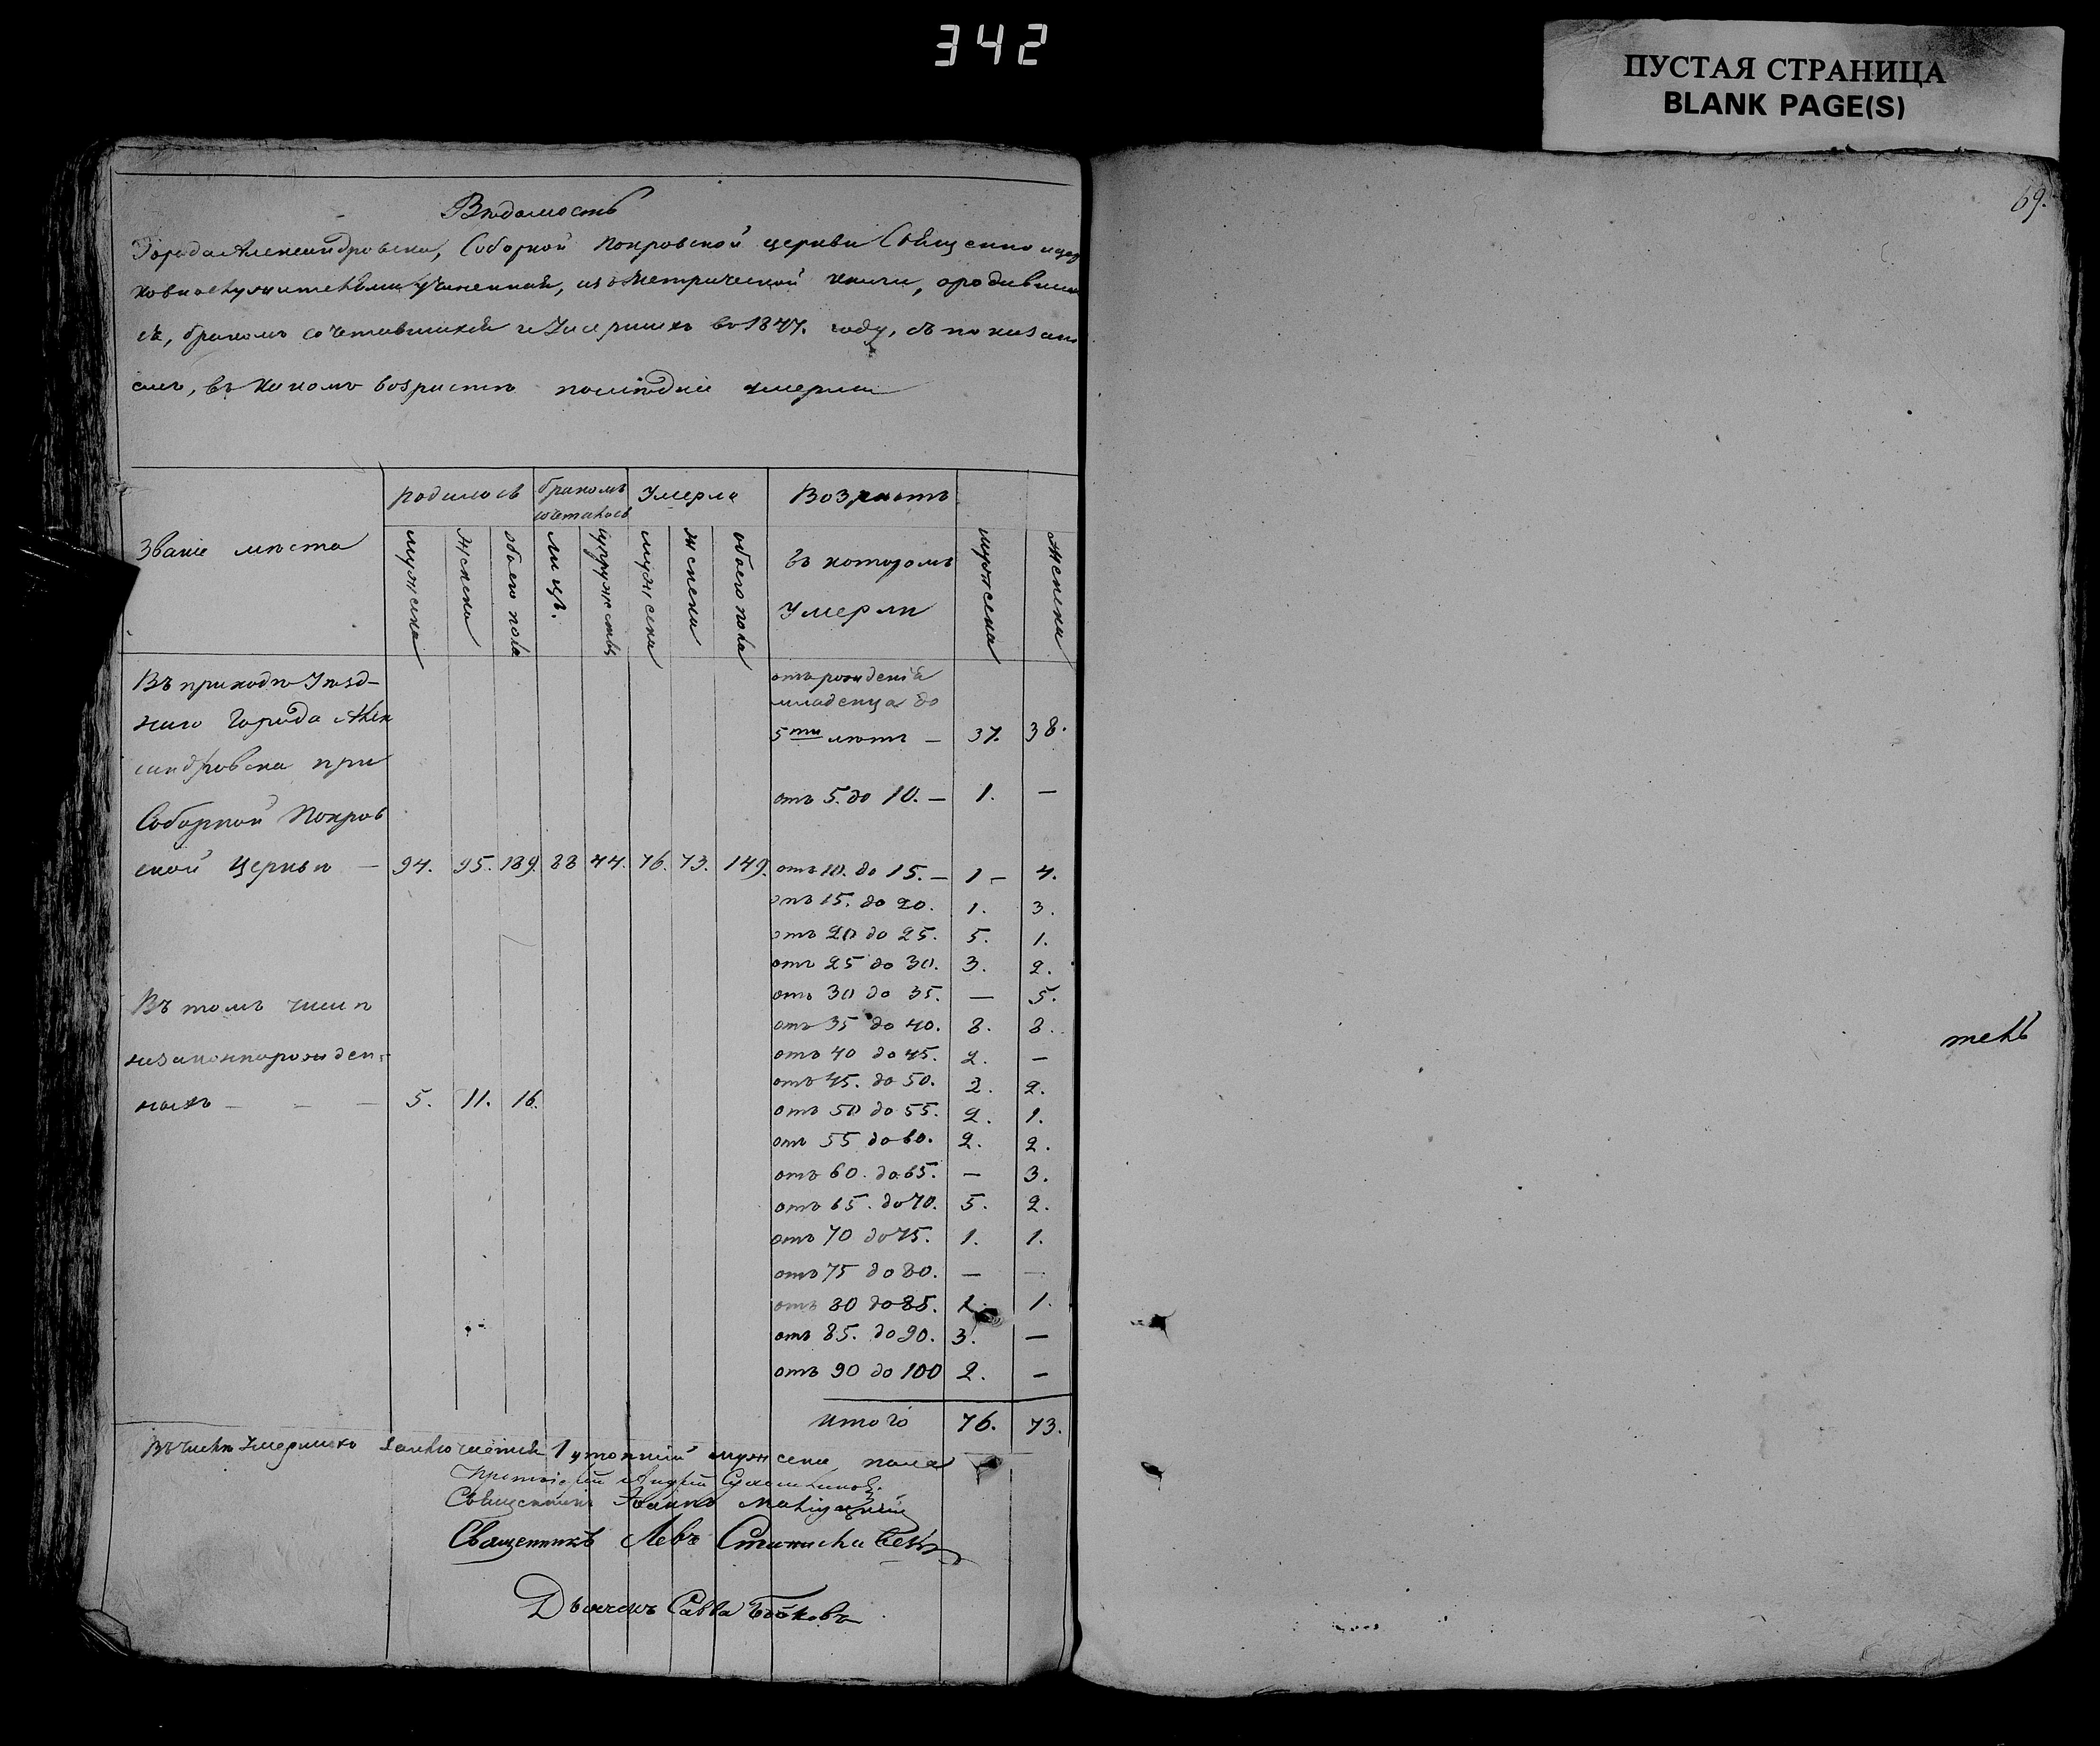 342
ПУСТАЯ СТРАНИЦА
BLANK PAGE(S)
69.
Вѣдомость
Города Александровска, Соборной Покровской церкви Священно и цер
ковнослужителями учиненная, изъ Метрической книги, о родивших
ся, бракомъ сочетавшихся и Умершихъ въ 1847. году, съ показані
емъ, въ какомъ возрастѣ послѣдніе умерли
Званіе мѣста
родилось
бракомъ сочеталось
Умерло
Возрастъ въ которомъ Умерли
мужеска
женска
обоего пола
лицъ.
супружествъ
мужеска
женска
обоего пола
мужеска
женска
Въ приходѣ Уѣзд-
наго Города Алек
сандровска при
Соборной Покров
ской Церкви — 94. 95. 189. 88 44. 76. 73. 149.
Въ томъ числѣ
незаконнорожден=
ныхъ — — — 5. 11. 16.
отъ рожденія
младенца до
5ти лѣтъ — 37. 38.
отъ 5. до 10. — 1. —
отъ 10. до 15. — 1 — 4.
отъ 15. до 20. 1. 3.
отъ 20 до 25. 5. 1.
отъ 25 до 30. 3. 2.
отъ 30 до 35. — 5.
отъ 35 до 40. 8. 8.
отъ 40 до 45. 2. —
отъ 45. до 50. 2. 2.
отъ 50 до 55. 2. 1.
отъ 55 до 60. 2. 2.
отъ 60. до 65. — 3.
отъ 65. до 70. 5. 2.
отъ 70 до 75. 1. 1.
отъ 75 до 80. — —
отъ 80 до 85. 1.
отъ 85. до 90. 3. —
отъ 90 до 100 2. —
итого 76. 73.
Въ числѣ Умершихъ заключается 1 утопшій мужеска пола
Протоіерей Андрей
Священникъ Іоаннъ
Священникъ Левъ
Дьячекъ Савва Бойковъ
тель